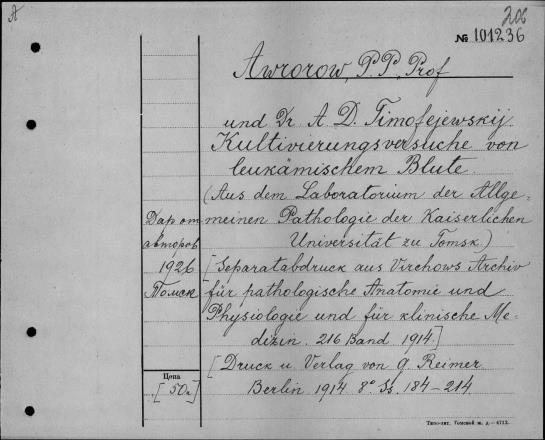 A
206
№ 101236
Awrorow, P. P., Prof
und Dr A. D. Timofejewskij.
Kultivierungsversuche von
leukämischem Blute.
(Aus dem Laboratorium der Allge-
meinen Pathologie der Kaiserlichen
Universität zu Tomsk.)
[Separatabdruck aus Virchows Archiv
für pathologische Anatomie und
Physiologie und für klinische Me-
dizin. 216 Band. 1914.]
[Druck u. Verlag von G. Reimer.
Berlin. 1914. 8º. Ss. 184–214.
Дар от
авторов
1926
Томск
Цена
[50к]
Типо-лит. Томской ж. д.—4713.